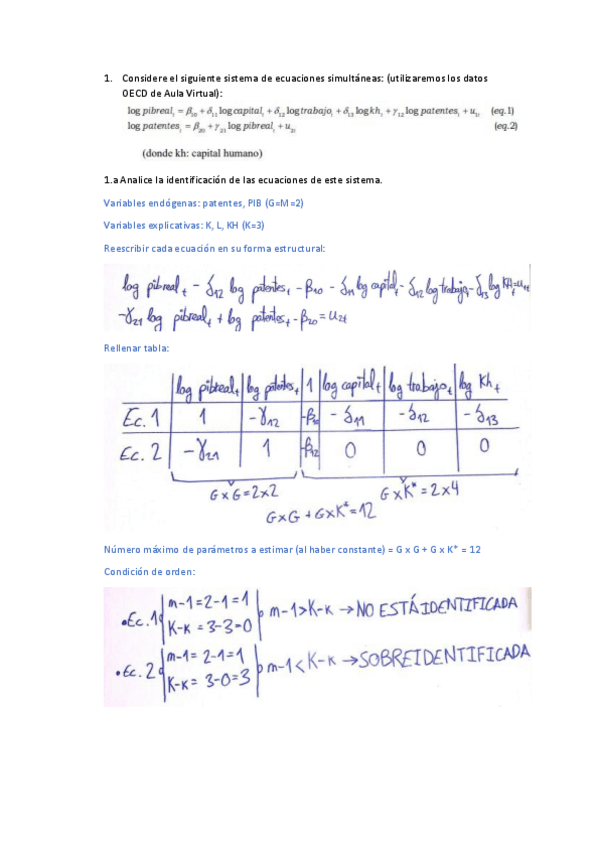 1. Considere el siguiente sistema de ecuaciones simultáneas: (utilizaremos los datos
OECD de Aula Virtual):
log pibreal_t = β_10 + δ_11 log capital_t + δ_12 log trabajo_t + δ_13 log kh_t + γ_12 log patentes_t + u_1t (eq.1)
log patentes_t = β_20 + γ_21 log pibreal_t + u_2t (eq.2)
(donde kh: capital humano)
1.a Analice la identificación de las ecuaciones de este sistema.
Variables endógenas: patentes, PIB (G=M=2)
Variables explicativas: K, L, KH (K=3)
Reescribir cada ecuación en su forma estructural:
log pibreal_t - δ_12 log patentes_t - β_10 - δ_11 log capital_t - δ_12 log trabajo_t - δ_13 log KH_t = u_1t
-γ_21 log pibreal_t + log patentes_t - β_20 = u_2t
Rellenar tabla:
log pibreal_t | log patentes_t | 1 | log capital_t | log trabajo_t | log Kh_t
Ec. 1 | 1 | -γ_12 | -β_10 | -δ_11 | -δ_12 | -δ_13
Ec. 2 | -γ_21 | 1 | -β_12 | 0 | 0 | 0
GxG=2x2 GxK*=2x4
GxG + GxK*=12
Número máximo de parámetros a estimar (al haber constante) = G x G + G x K* = 12
Condición de orden:
•Ec. 1 m-1=2-1=1
K-k=3-3=0
m-1>K-k → NO ESTÁ IDENTIFICADA
•Ec. 2 m-1=2-1=1
K-k=3-0=3
m-1<K-k → SOBREIDENTIFICADA